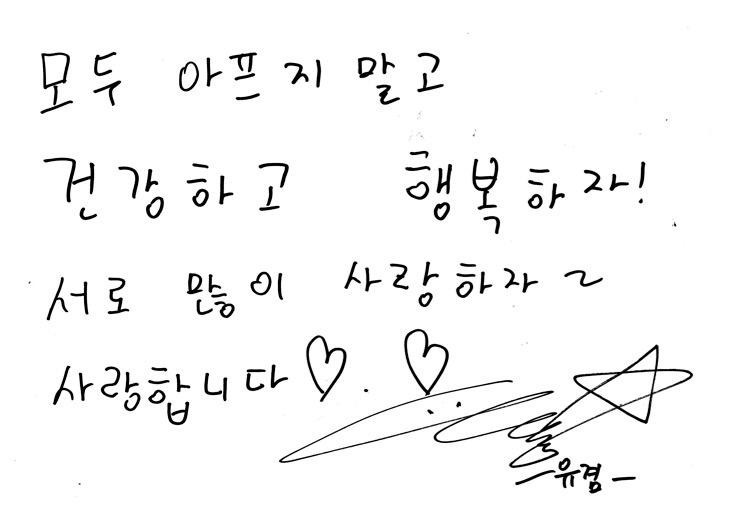 모두 아프지 말고
건강하고 행복하자!
서로 많이 사랑하자~
사랑합니다♡.♡
-유겸-